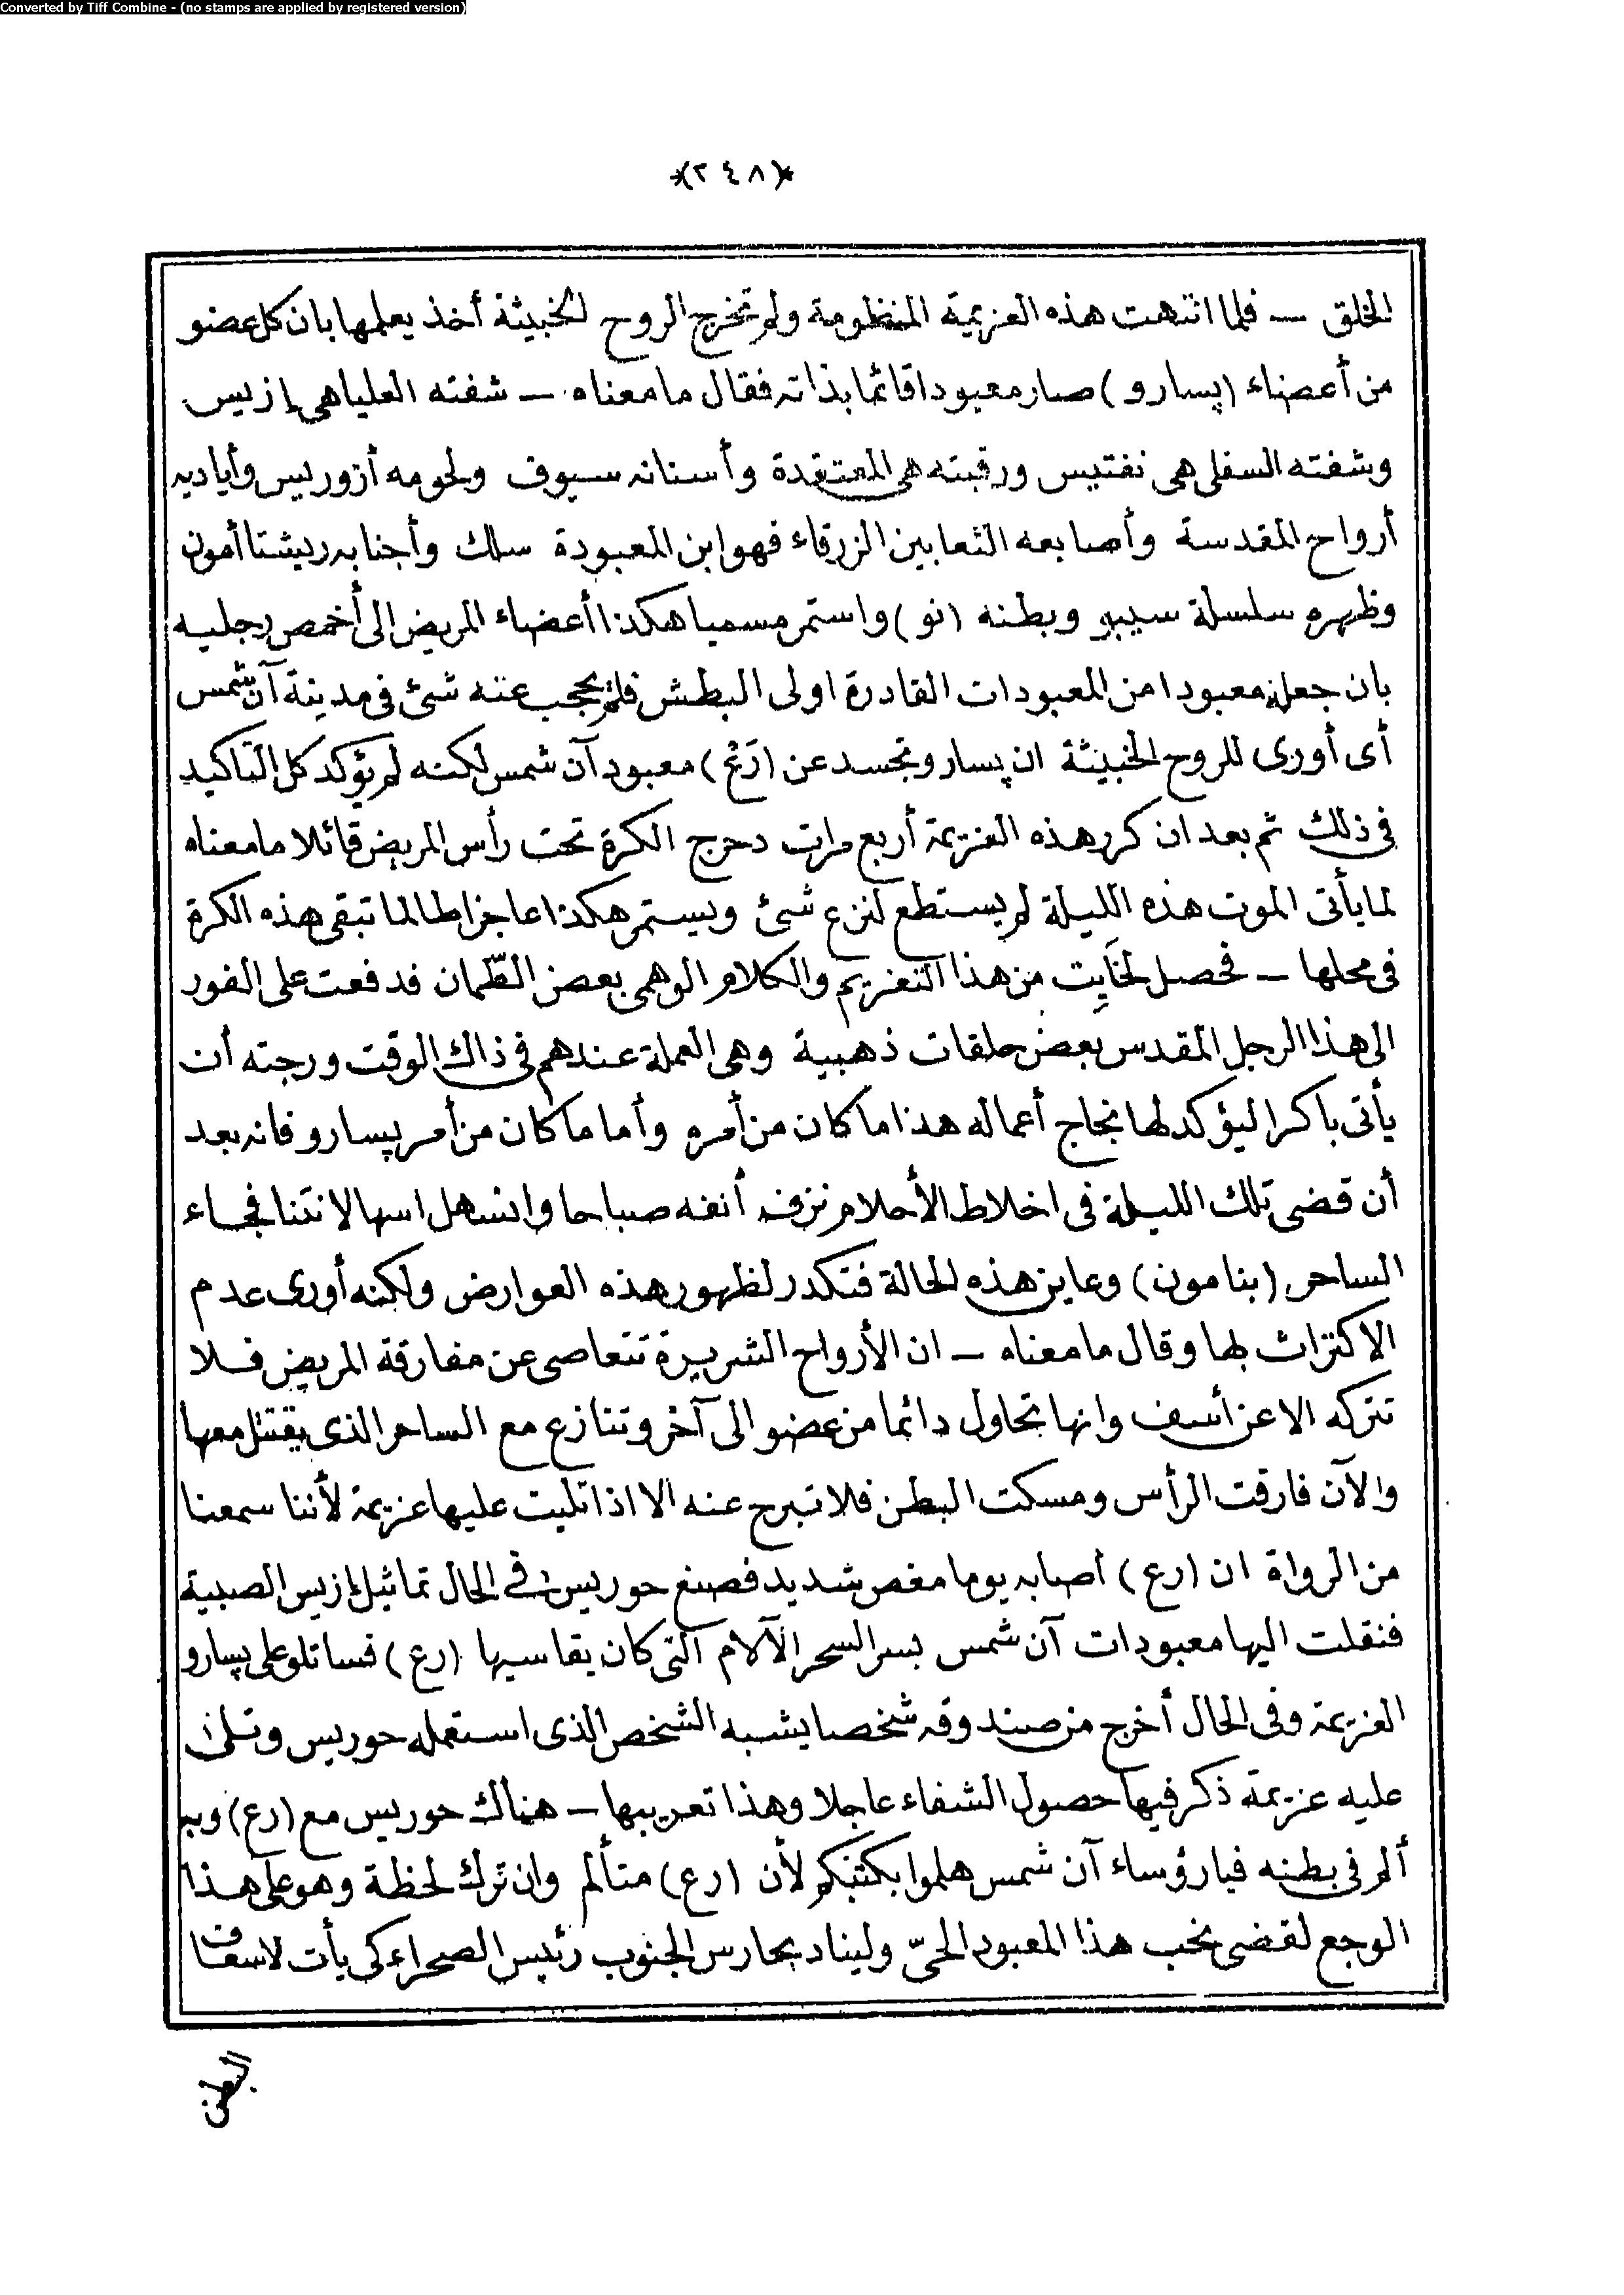 Converted by Tiff Combine - (no stamps are applied by registered version)
*(٢٤٨)*
الخلق — فلما انتهت هذه العزيمة المنظومة ولم تخرج الروح الخبيثة أخذ يعلمها بان كل عضو
من أعضاء (پسارو) صار معبودا قائما بذاته فقال ما معناه — شفته العليا هى إزيس
وشفته السفلى هى نفتيس ورقبته هى المعتقدة وأسنانه سيوف ولحومه أزوريس وأياديه
أرواح المقدسة وأصابعه الثعابين الزرقاء فهو ابن المعبودة سلك وأجنابه ريشتا أمون
وظهره سلسلة سيبو وبطنه (نو) واستمر مسميا هكذا أعضاء المريض الى أخمص رجليه
بان جعله معبودا من المعبودات القادرة اولى البطش فلم يحجب عنه شئ فى مدينة آن شمس
أى أورى للروح الخبيثة ان پسارو تجسد عن (رَعْ) معبود آن شمس لكنه لم يؤكد كل التاكيد
فى ذلك ثم بعد ان كرر هذه العزيمة أربع مرات دحرج الكرة تحت رأس المريض قائلا ما معناه
لما يأتى الموت هذه الليلة لم يستطع لنزع شئ ويستمر هكذا عاجزا طالما تبقى هذه الكرة
فى محلها — فحصل لخايت من هذا التعزيم والكلام الوهمى بعض الطّمان فدفعت على الفور
الى هذا الرجل المقدس بعض حلقات ذهبية وهى العملة عندهم فى ذاك الوقت ورجته أن
يأتى باكرا ليؤكد لها نجاح أعماله هذا ما كان من أمره وأما ما كان من أمر پسارو فانه بعد
أن قضى تلك الليلة فى اخلاط الأحلام نزف أنفه صباحا وانسهل اسهالا نتنا فجاء
الساحر (بنامون) وعاين هذه الحالة فتكدر لظهور هذه العوارض ولكنه أورى عدم
الاكتراث بها وقال ما معناه — ان الأرواح الشريرة تتعاصى عن مفارقة المريض فلا
تتركه الا عن أسف وانها تحاول دائما من عضو الى آخر وتتنازع مع الساحر الذى يقتتل معها
والآن فارقت الرأس ومسكت البطن فلا تبرح عنه الا اذا تليت عليها عزيمة لأننا سمعنا
من الرواة ان (رع) اصابه يوما مغص شديد فصنع حوريس فى الحال تماثيل إزيس الصبية
فنقلت اليها معبودات آن شمس بسر السحر الآلام التى كان يقاسيها (رع) فساتلو على پسارو
العزيمة وفى الحال أخرج من صندوقه شخصا يشبه الشخص الذى استعمله حوريس وتلى
عليه عزيمة ذكر فيها حصول الشفاء عاجلا وهذا تعريبها — هناك حوريس مع (رع) وبه
ألم فى بطنه فيا رؤساء آن شمس هلموا بكتبكم لأن (رع) متألم وان ترك لحظة وهو على هذا
الوجع لقضى نحب هذا المعبود الحىّ ولينادِ بحارس الجنوب رئيس الصحراء كى يأت لاسعاف